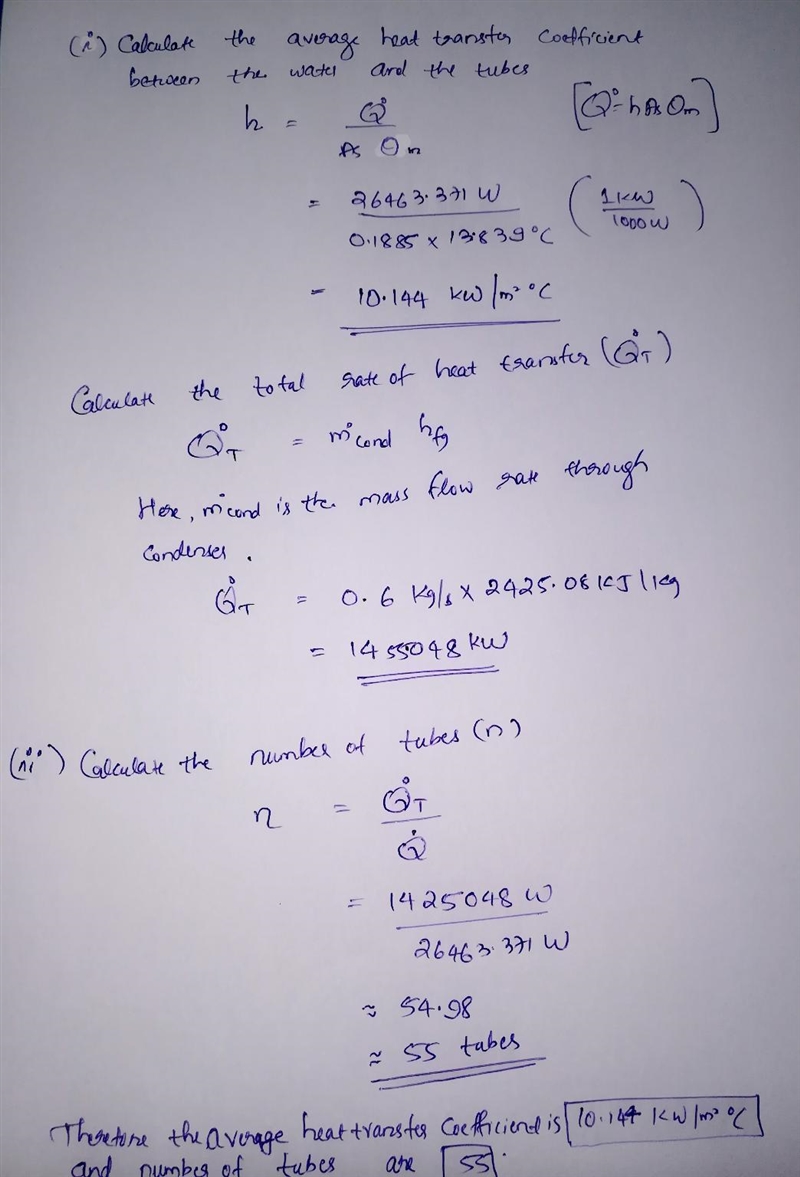 (i) Calculate the average heat transfer Coefficient
between the water and the tubes
h = Q̇ / As Θm [Q̇ = h As Θm]
= 26463.371 W / 0.1885 x 13.839°C (1 KW / 1000 W)
= 10.144 kW/m² °C
Calculate the total rate of heat transfer (Q̇T)
Q̇T = ṁcond hfg
Here, ṁcond is the mass flow rate through
Condenser.
Q̇T = 0.6 Kg/s x 2425.08 KJ/Kg
= 1455048 KW
(ii) Calculate the number of tubes (n)
n = Q̇T / Q̇
= 1425048 W / 26463.371 W
≈ 54.98
≈ 55 tubes
Therefore the average heat transfer Coefficient is 10.144 KW/m² °C
and number of tubes are 55.